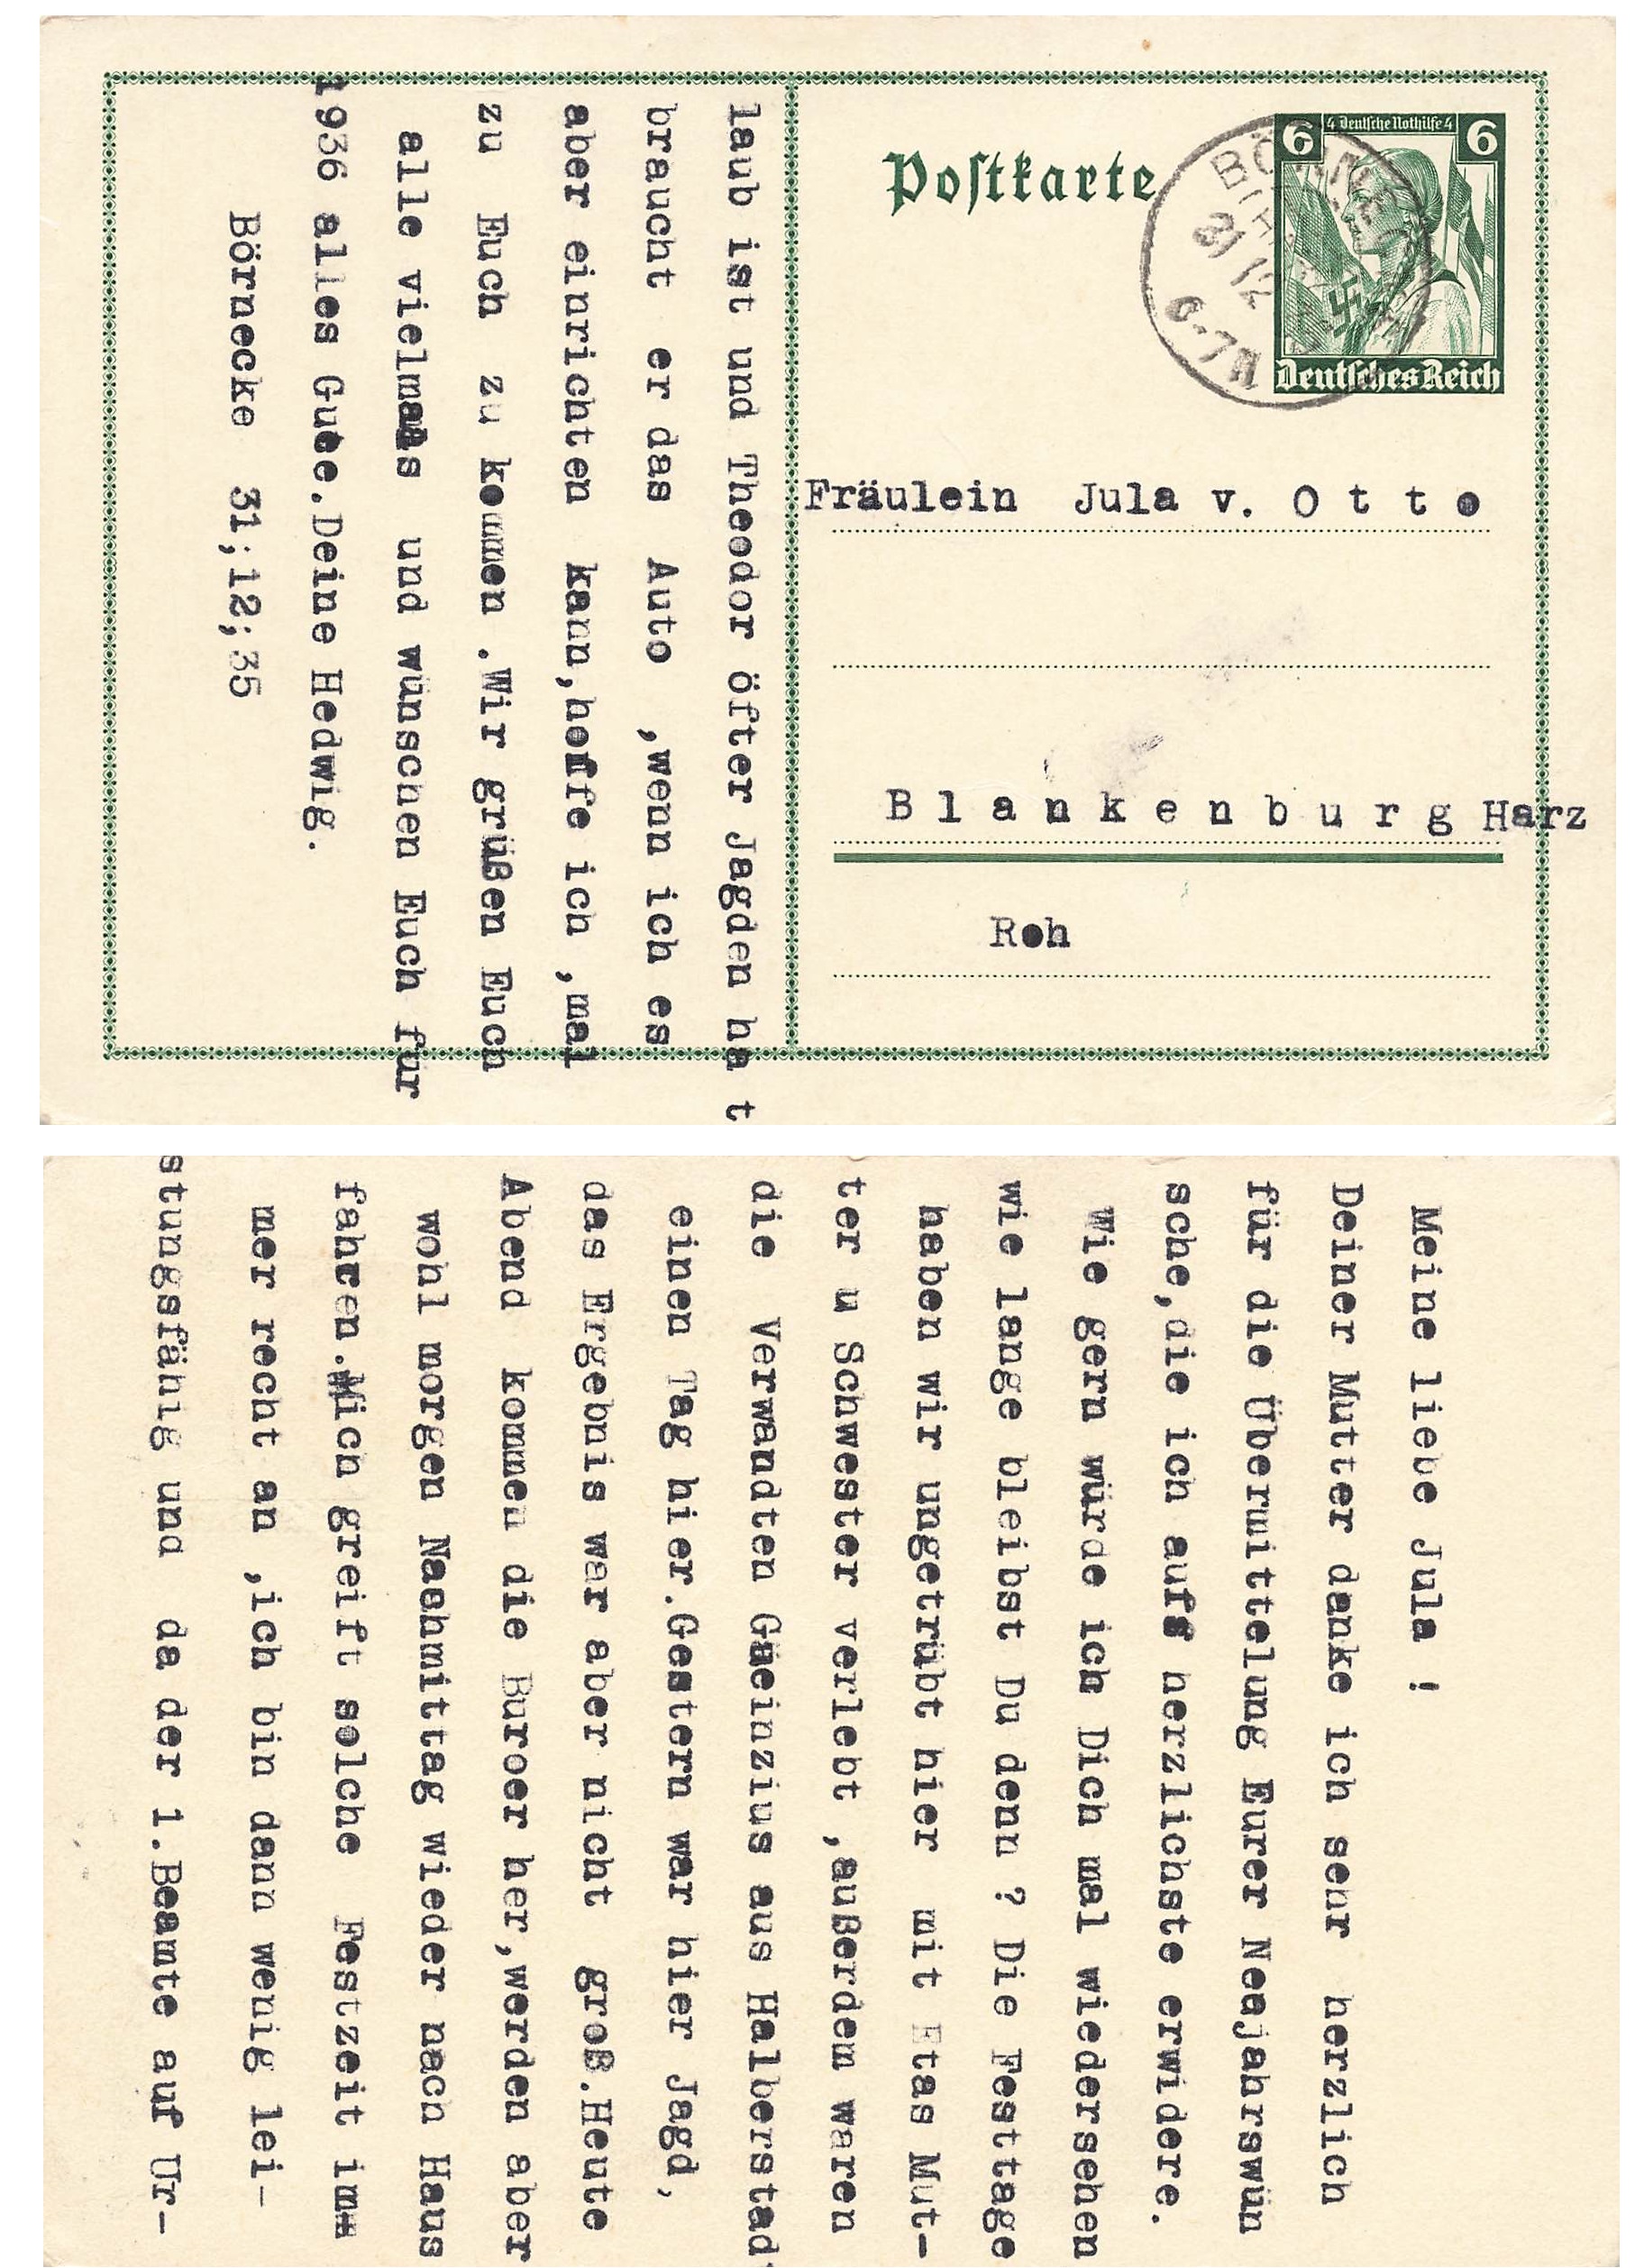 Postkarte
6 4 Deutsche Nothilfe 4 6
Deutsches Reich
31 12
6-7N
Fräulein Jula v. O t t o
B l a n k e n b u r g Harz
Roh
laub ist und Theodor öfter Jagden ha t
braucht er das Auto ,wenn ich es
aber einrichten kann,hoffe ich ,mal
zu Euch zu kommen .Wir grüßen Euch
alle vielmals und wünschen Euch für
1936 alles Gute.Deine Hedwig.
Börnecke 31;12;35
Meine liebe Jula !
Deiner Mutter danke ich sehr herzlich
für die Übermittelung Eurer Neujahrswün
sche,die ich aufs herzlichste erwidere.
Wie gern würde ich Dich mal wiedersehen
wie lange bleibst Du denn ? Die Festtage
haben wir ungetrübt hier mit Etas Mut-
ter u Schwester verlebt ,außerdem waren
die Verwandten Gäeinzius aus Halberstad
einen Tag hier.Gestern war hier Jagd,
das Ergebnis war aber nicht groß.Heute
Abend kommen die Buroer her,werden aber
wohl morgen Nachmittag wieder nach Haus
fahren.Mich greift solche Festzeit imm
mer recht an ,ich bin dann wenig lei-
stungsfähig und da der 1.Beamte auf Ur-